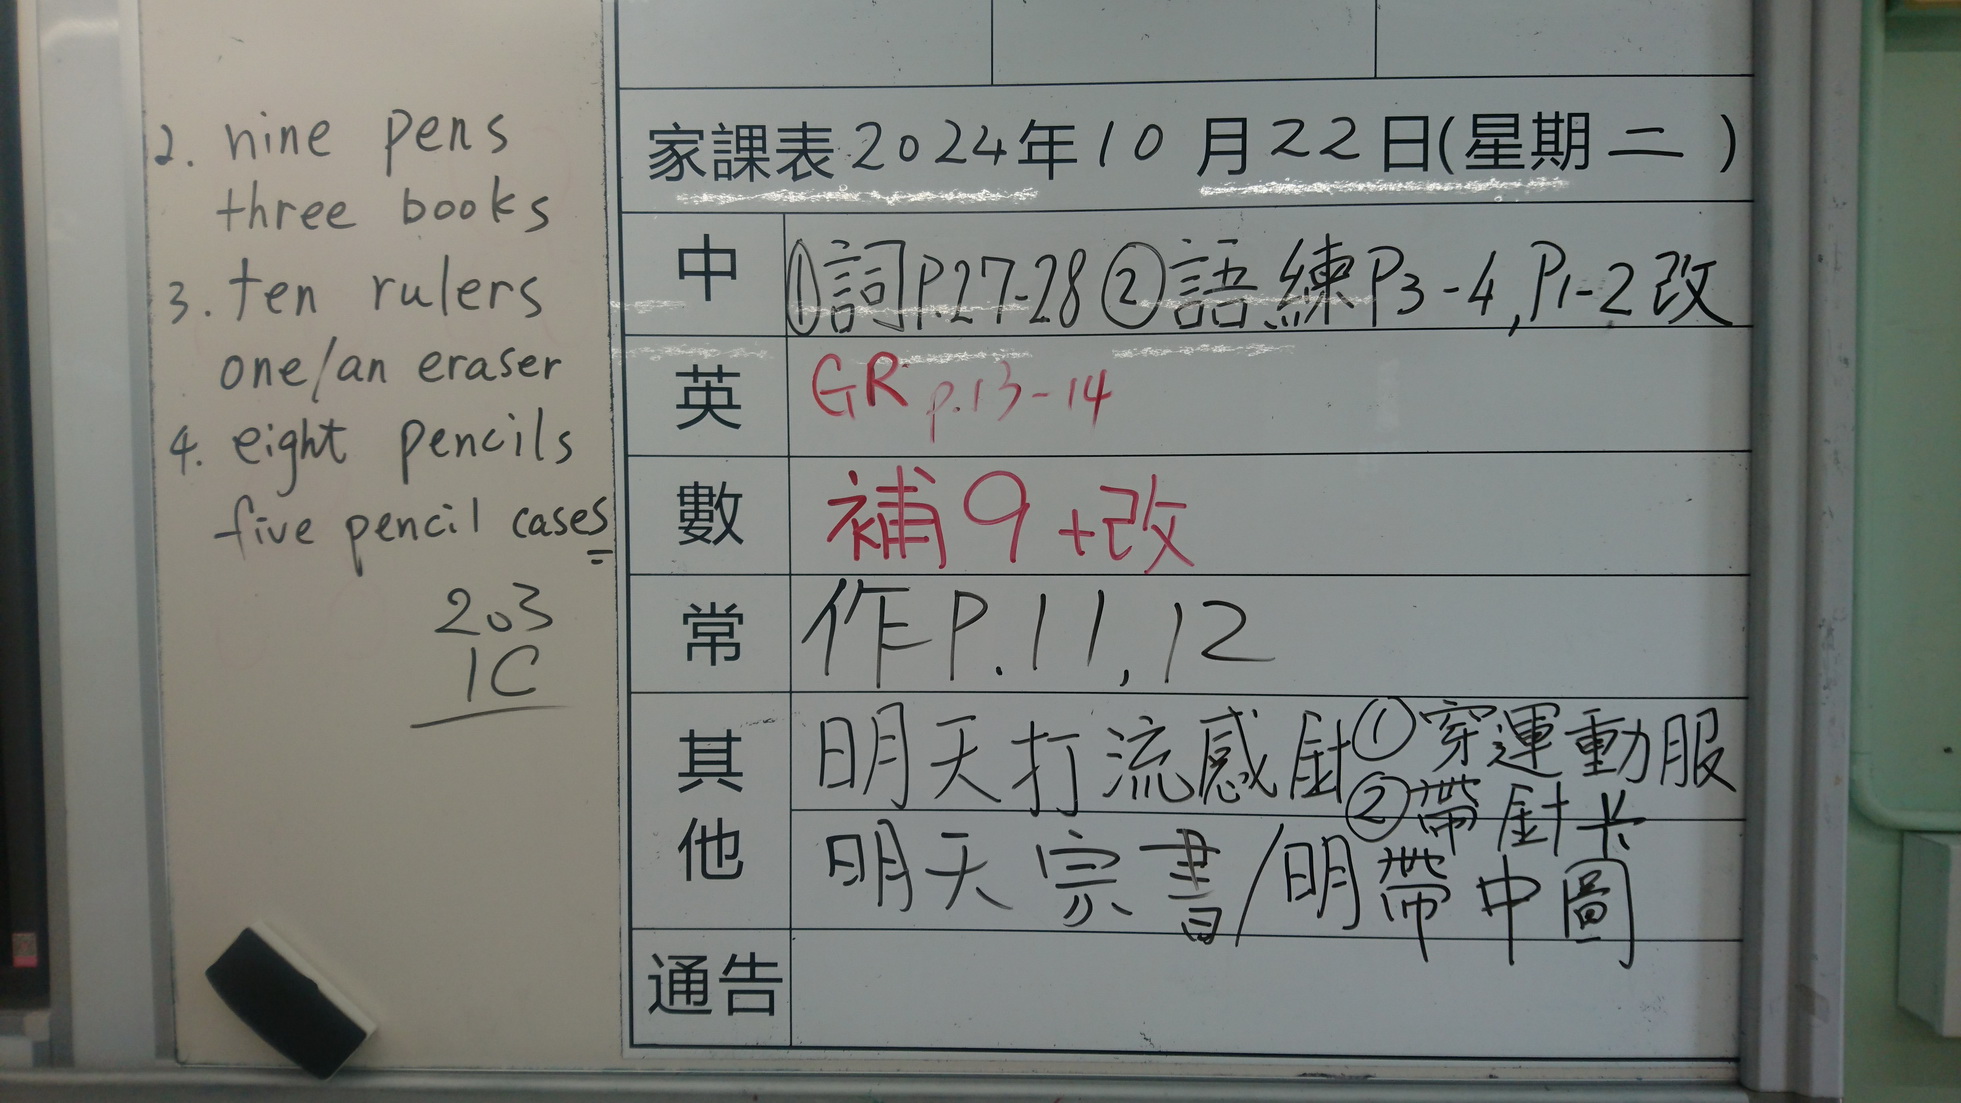 2. nine pens
three books
3. ten rulers
one/an eraser
4. eight pencils
five pencil cases
203
1C
家課表2024年10月22日(星期二)
中 ①詞P.27-28②語練P3-4,P1-2改
英 GR p.13-14
數 補9+改
常 作P.11,12
其他 明天打流感針①穿運動服
②帶針卡
明天宗書/明帶中圖
通告